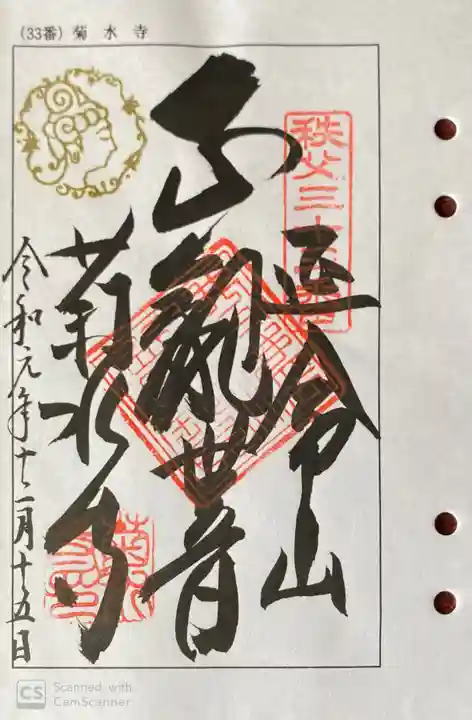 (33番) 菊水寺
秩父三十三番
延命山
正観世音
菊水寺
令和元年十一月十五日
CS Scanned with
CamScanner